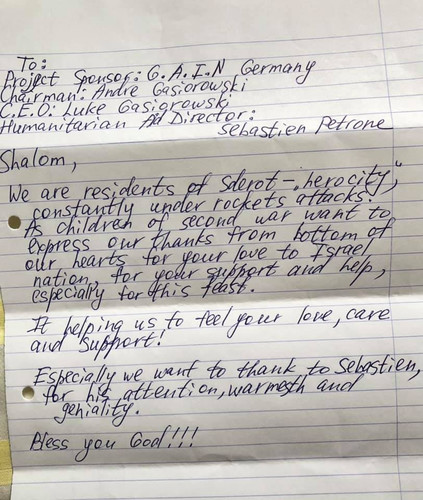 To:
Project Sponsor: G.A.I.N Germany
Chairman: Andre Gasiorowski
C.E.O: Luke Gasiorowski
Humanitarian Aid Director:
Sebastien Petrone
Shalom,
We are residents of Sderot-„herocity",
constantly under rockets attacks.
As children of second war want to
express our thanks from bottom of
our hearts for your love to Israel
nation, for your support and help,
especially for this feast.
It helping us to feel your love, care
and support!
Especially we want to thank to Sebastien,
for his attention, warmesth and
geniality.
Bless you God!!!